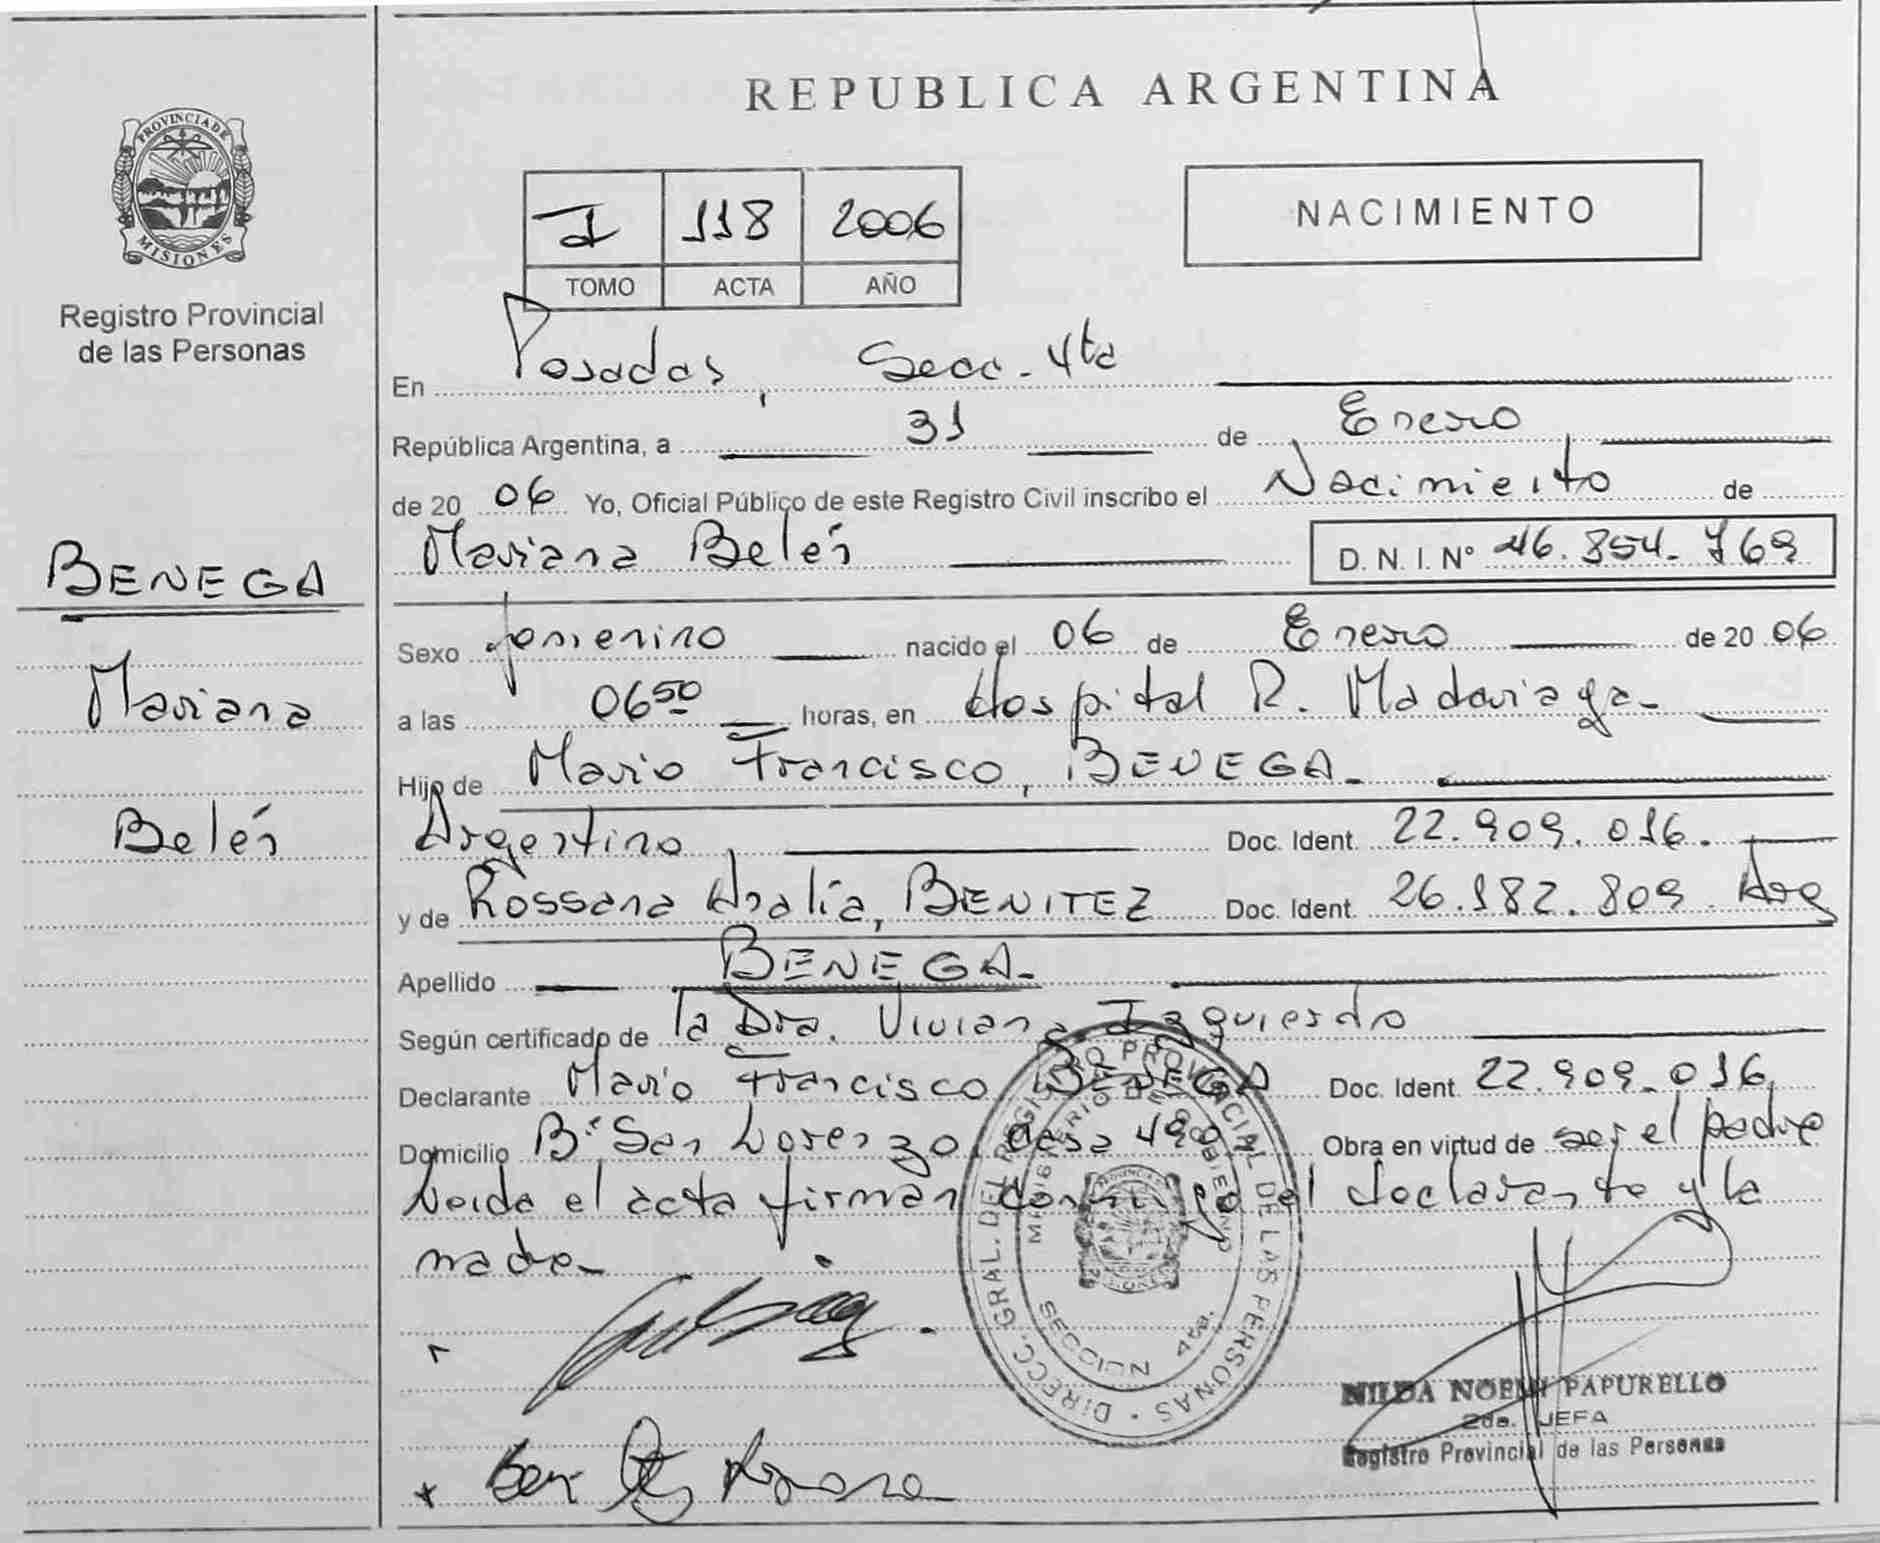 REPUBLICA ARGENTINA
PROVINCIA DE MISIONES
Registro Provincial
de las Personas
BENEGA
Mariana
Belén
I 118 2006
TOMO ACTA AÑO
NACIMIENTO
En Posadas, Secc. 4ta
República Argentina, a 31 de Enero
de 20 06 Yo, Oficial Público de este Registro Civil inscribo el Nacimiento de
Mariana Belén D. N. I. N° 46.854.769
Sexo femenino nacido el 06 de Enero de 20 06
a las 06 50 horas, en Hospital R. Madariaga-
Hijo de Mario Francisco, BENEGA-
Argentino, Doc. Ident. 22.909.016.
y de Rossana Analía, BENITEZ Doc. Ident. 26.182.809. Arg
Apellido BENEGA-
Según certificado de la Dra. Viviana Izquierdo
Declarante Mario Francisco BENEGA Doc. Ident. 22.909.016,
Domicilio B° San Lorenzo, casa Obra en virtud de ser el padre
Leida el acta firman conmigo el declarante y la
madre-
DIRECC. GRAL. DEL REGISTRO PROVINCIAL DE LAS PERSONAS
MINISTERIO DE GOBIERNO
SECCION 4ta.
NILDA NOEMI PAPURELLO
2da. JEFA
Registro Provincial de las Personas